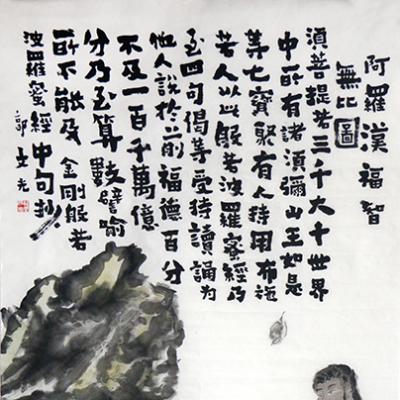 阿羅漢福智
無比圖
須菩提若三千大千世界
中所有諸須彌山王如是
等七寶聚有人持用布施
若人以此般若波羅蜜經乃
至四句偈等受持讀誦为
他人說於前福德百分
不及一百千萬億
分乃至算數譬喻
所不能及 金剛般若
波羅蜜經中句抄